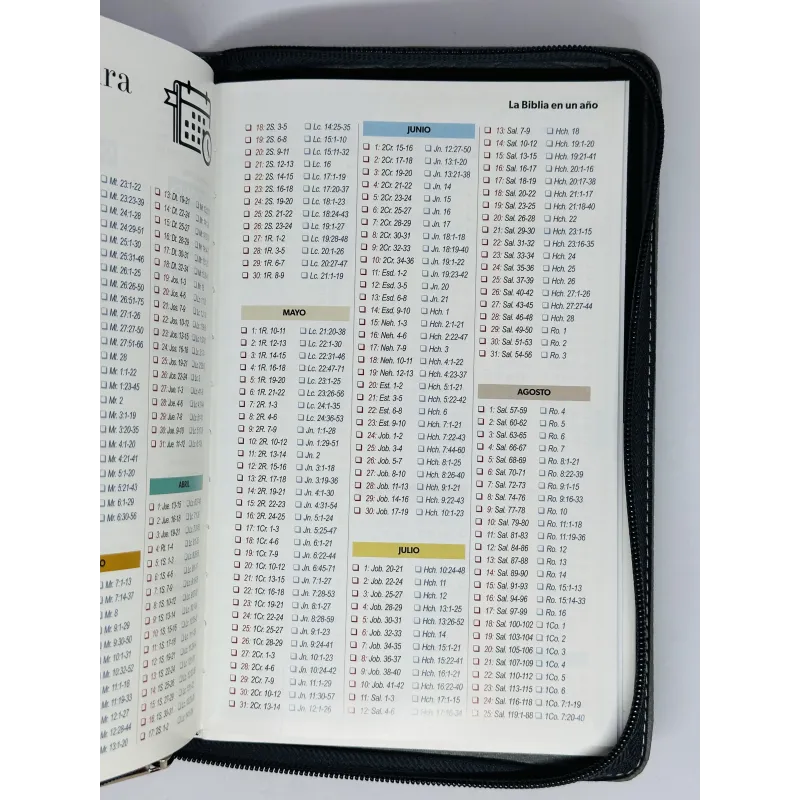 ra
Mt. 23:1-22
Mt. 23:23-39
Mt. 24:1-28
Mt. 24:29-51
Mt. 25:1-30
Mt. 25:31-46
Mt. 26:1-25
Mt. 26:26-50
Mt. 26:51-75
Mt. 27:1-26
Mt. 27:27-50
Mt. 27:51-66
Mt. 28
Mr. 1:1-22
Mr. 1:23-45
Mr. 2
Mr. 3:1-19
Mr. 3:20-35
Mr. 4:1-20
Mr. 4:21-41
Mr. 5:1-20
Mr. 5:21-43
Mr. 6:1-29
Mr. 6:30-56
O
Mr. 7:1-13
Mr. 7:14-37
Mr. 8
Mr. 9:1-29
Mr. 9:30-50
Mr. 10:1-31
Mr. 10:32-52
Mr. 11:1-18
Mr. 11:19-33
Mr. 12:1-27
Mr. 12:28-44
Mr. 13:1-20
ABRIL
La Biblia en un año
18: 2S. 3-5 Lc. 14:25-35
19: 2S. 6-8 Lc. 15:1-10
20: 2S. 9-11 Lc. 15:11-32
21: 2S. 12-13 Lc. 16
22: 2S. 14-15 Lc. 17:1-19
23: 2S. 16-18 Lc. 17:20-37
24: 2S. 19-20 Lc. 18:1-23
25: 2S. 21-22 Lc. 18:24-43
26: 2S. 23-24 Lc. 19:1-27
27: 1R. 1-2 Lc. 19:28-48
28: 1R. 3-5 Lc. 20:1-26
29: 1R. 6-7 Lc. 20:27-47
30: 1R. 8-9 Lc. 21:1-19
MAYO
1: 1R. 10-11 Lc. 21:20-38
2: 1R. 12-13 Lc. 22:1-30
3: 1R. 14-15 Lc. 22:31-46
4: 1R. 16-18 Lc. 22:47-71
5: 1R. 19-20 Lc. 23:1-25
6: 1R. 21-22 Lc. 23:26-56
7: 2R. 1-3 Lc. 24:1-35
8: 2R. 4-6 Lc. 24:36-53
9: 2R. 7-9 Jn. 1:1-28
10: 2R. 10-12 Jn. 1:29-51
11: 2R. 13-14 Jn. 2
12: 2R. 15-16 Jn. 3:1-18
13: 2R. 17-18 Jn. 3:19-36
14: 2R. 19-21 Jn. 4:1-30
15: 2R. 22-23 Jn. 4:31-54
16: 2R. 24-25 Jn. 5:1-24
17: 1Cr. 1-3 Jn. 5:25-47
18: 1Cr. 4-6 Jn. 6:1-21
19: 1Cr. 7-9 Jn. 6:22-44
20: 1Cr. 10-12 Jn. 6:45-71
21: 1Cr. 13-15 Jn. 7:1-27
22: 1Cr. 16-18 Jn. 7:28-53
23: 1Cr. 19-21 Jn. 8:1-27
24: 1Cr. 22-24 Jn. 8:28-59
25: 1Cr. 25-27 Jn. 9:1-23
26: 1Cr. 28-29 Jn. 9:24-41
27: 2Cr. 1-3 Jn. 10:1-23
28: 2Cr. 4-6 Jn. 10:24-42
29: 2Cr. 7-9 Jn. 11:1-29
30: 2Cr. 10-12 Jn. 11:30-57
31: 2Cr. 13-14 Jn. 12:1-26
JUNIO
1: 2Cr. 15-16 Jn. 12:27-50
2: 2Cr. 17-18 Jn. 13:1-20
3: 2Cr. 19-20 Jn. 13:21-38
4: 2Cr. 21-22 Jn. 14
5: 2Cr. 23-24 Jn. 15
6: 2Cr. 25-27 Jn. 16
7: 2Cr. 28-29 Jn. 17
8: 2Cr. 30-31 Jn. 18:1-18
9: 2Cr. 32-33 Jn. 18:19-40
10: 2Cr. 34-36 Jn. 19:1-22
11: Esd. 1-2 Jn. 19:23-42
12: Esd. 3-5 Jn. 20
13: Esd. 6-8 Jn. 21
14: Esd. 9-10 Hch. 1
15: Neh. 1-3 Hch. 2:1-21
16: Neh. 4-6 Hch. 2:22-47
17: Neh. 7-9 Hch. 3
18: Neh. 10-11 Hch. 4:1-22
19: Neh. 12-13 Hch. 4:23-37
20: Est. 1-2 Hch. 5:1-21
21: Est. 3-5 Hch. 5:22-42
22: Est. 6-8 Hch. 6
23: Est. 9-10 Hch. 7:1-21
24: Job. 1-2 Hch. 7:22-43
25: Job. 3-4 Hch. 7:44-60
26: Job. 5-7 Hch. 8:1-25
27: Job. 8-10 Hch. 8:26-40
28: Job. 11-13 Hch. 9:1-21
29: Job. 14-16 Hch. 9:22-43
30: Job. 17-19 Hch. 10:1-23
JULIO
1: Job. 20-21 Hch. 10:24-48
2: Job. 22-24 Hch. 11
3: Job. 25-27 Hch. 12
4: Job. 28-29 Hch. 13:1-25
5: Job. 30-31 Hch. 13:26-52
6: Job. 32-33 Hch. 14
7: Job. 34-35 Hch. 15:1-21
8: Job. 36-37 Hch. 15:22-41
9: Job. 38-40 Hch. 16:1-21
10: Job. 41-42 Hch. 16:22-40
11: Sal. 1-3 Hch. 17:1-15
12: Sal. 4-6 Hch. 17:16-34
13: Sal. 7-9 Hch. 18
14: Sal. 10-12 Hch. 19:1-20
15: Sal. 13-15 Hch. 19:21-41
16: Sal. 16-17 Hch. 20:1-16
17: Sal. 18-19 Hch. 20:17-38
18: Sal. 20-22 Hch. 21:1-17
19: Sal. 23-25 Hch. 21:18-40
20: Sal. 26-28 Hch. 22
21: Sal. 29-30 Hch. 23:1-15
22: Sal. 31-32 Hch. 23:16-35
23: Sal. 33-34 Hch. 24
24: Sal. 35-36 Hch. 25
25: Sal. 37-39 Hch. 26
26: Sal. 40-42 Hch. 27:1-26
27: Sal. 43-45 Hch. 27:27-44
28: Sal. 46-48 Hch. 28
29: Sal. 49-50 Ro. 1
30: Sal. 51-53 Ro. 2
31: Sal. 54-56 Ro. 3
AGOSTO
1: Sal. 57-59 Ro. 4
2: Sal. 60-62 Ro. 5
3: Sal. 63-65 Ro. 6
4: Sal. 66-67 Ro. 7
5: Sal. 68-69 Ro. 8:1-21
6: Sal. 70-71 Ro. 8:22-39
7: Sal. 72-73 Ro. 9:1-15
8: Sal. 74-76 Ro. 9:16-33
9: Sal. 77-78 Ro. 10
10: Sal. 79-80 Ro. 11:1-18
11: Sal. 81-83 Ro. 11:19-36
12: Sal. 84-86 Ro. 12
13: Sal. 87-88 Ro. 13
14: Sal. 89-90 Ro. 14
15: Sal. 91-93 Ro. 15:1-13
16: Sal. 94-96 Ro. 15:14-33
17: Sal. 97-99 Ro. 16
18: Sal. 100-102 1Co. 1
19: Sal. 103-104 1Co. 2
20: Sal. 105-106 1Co. 3
21: Sal. 107-109 1Co. 4
22: Sal. 110-112 1Co. 5
23: Sal. 113-115 1Co. 6
24: Sal. 116-118 1Co. 7:1-19
25: Sal. 119:1-88 1Co. 7:20-40